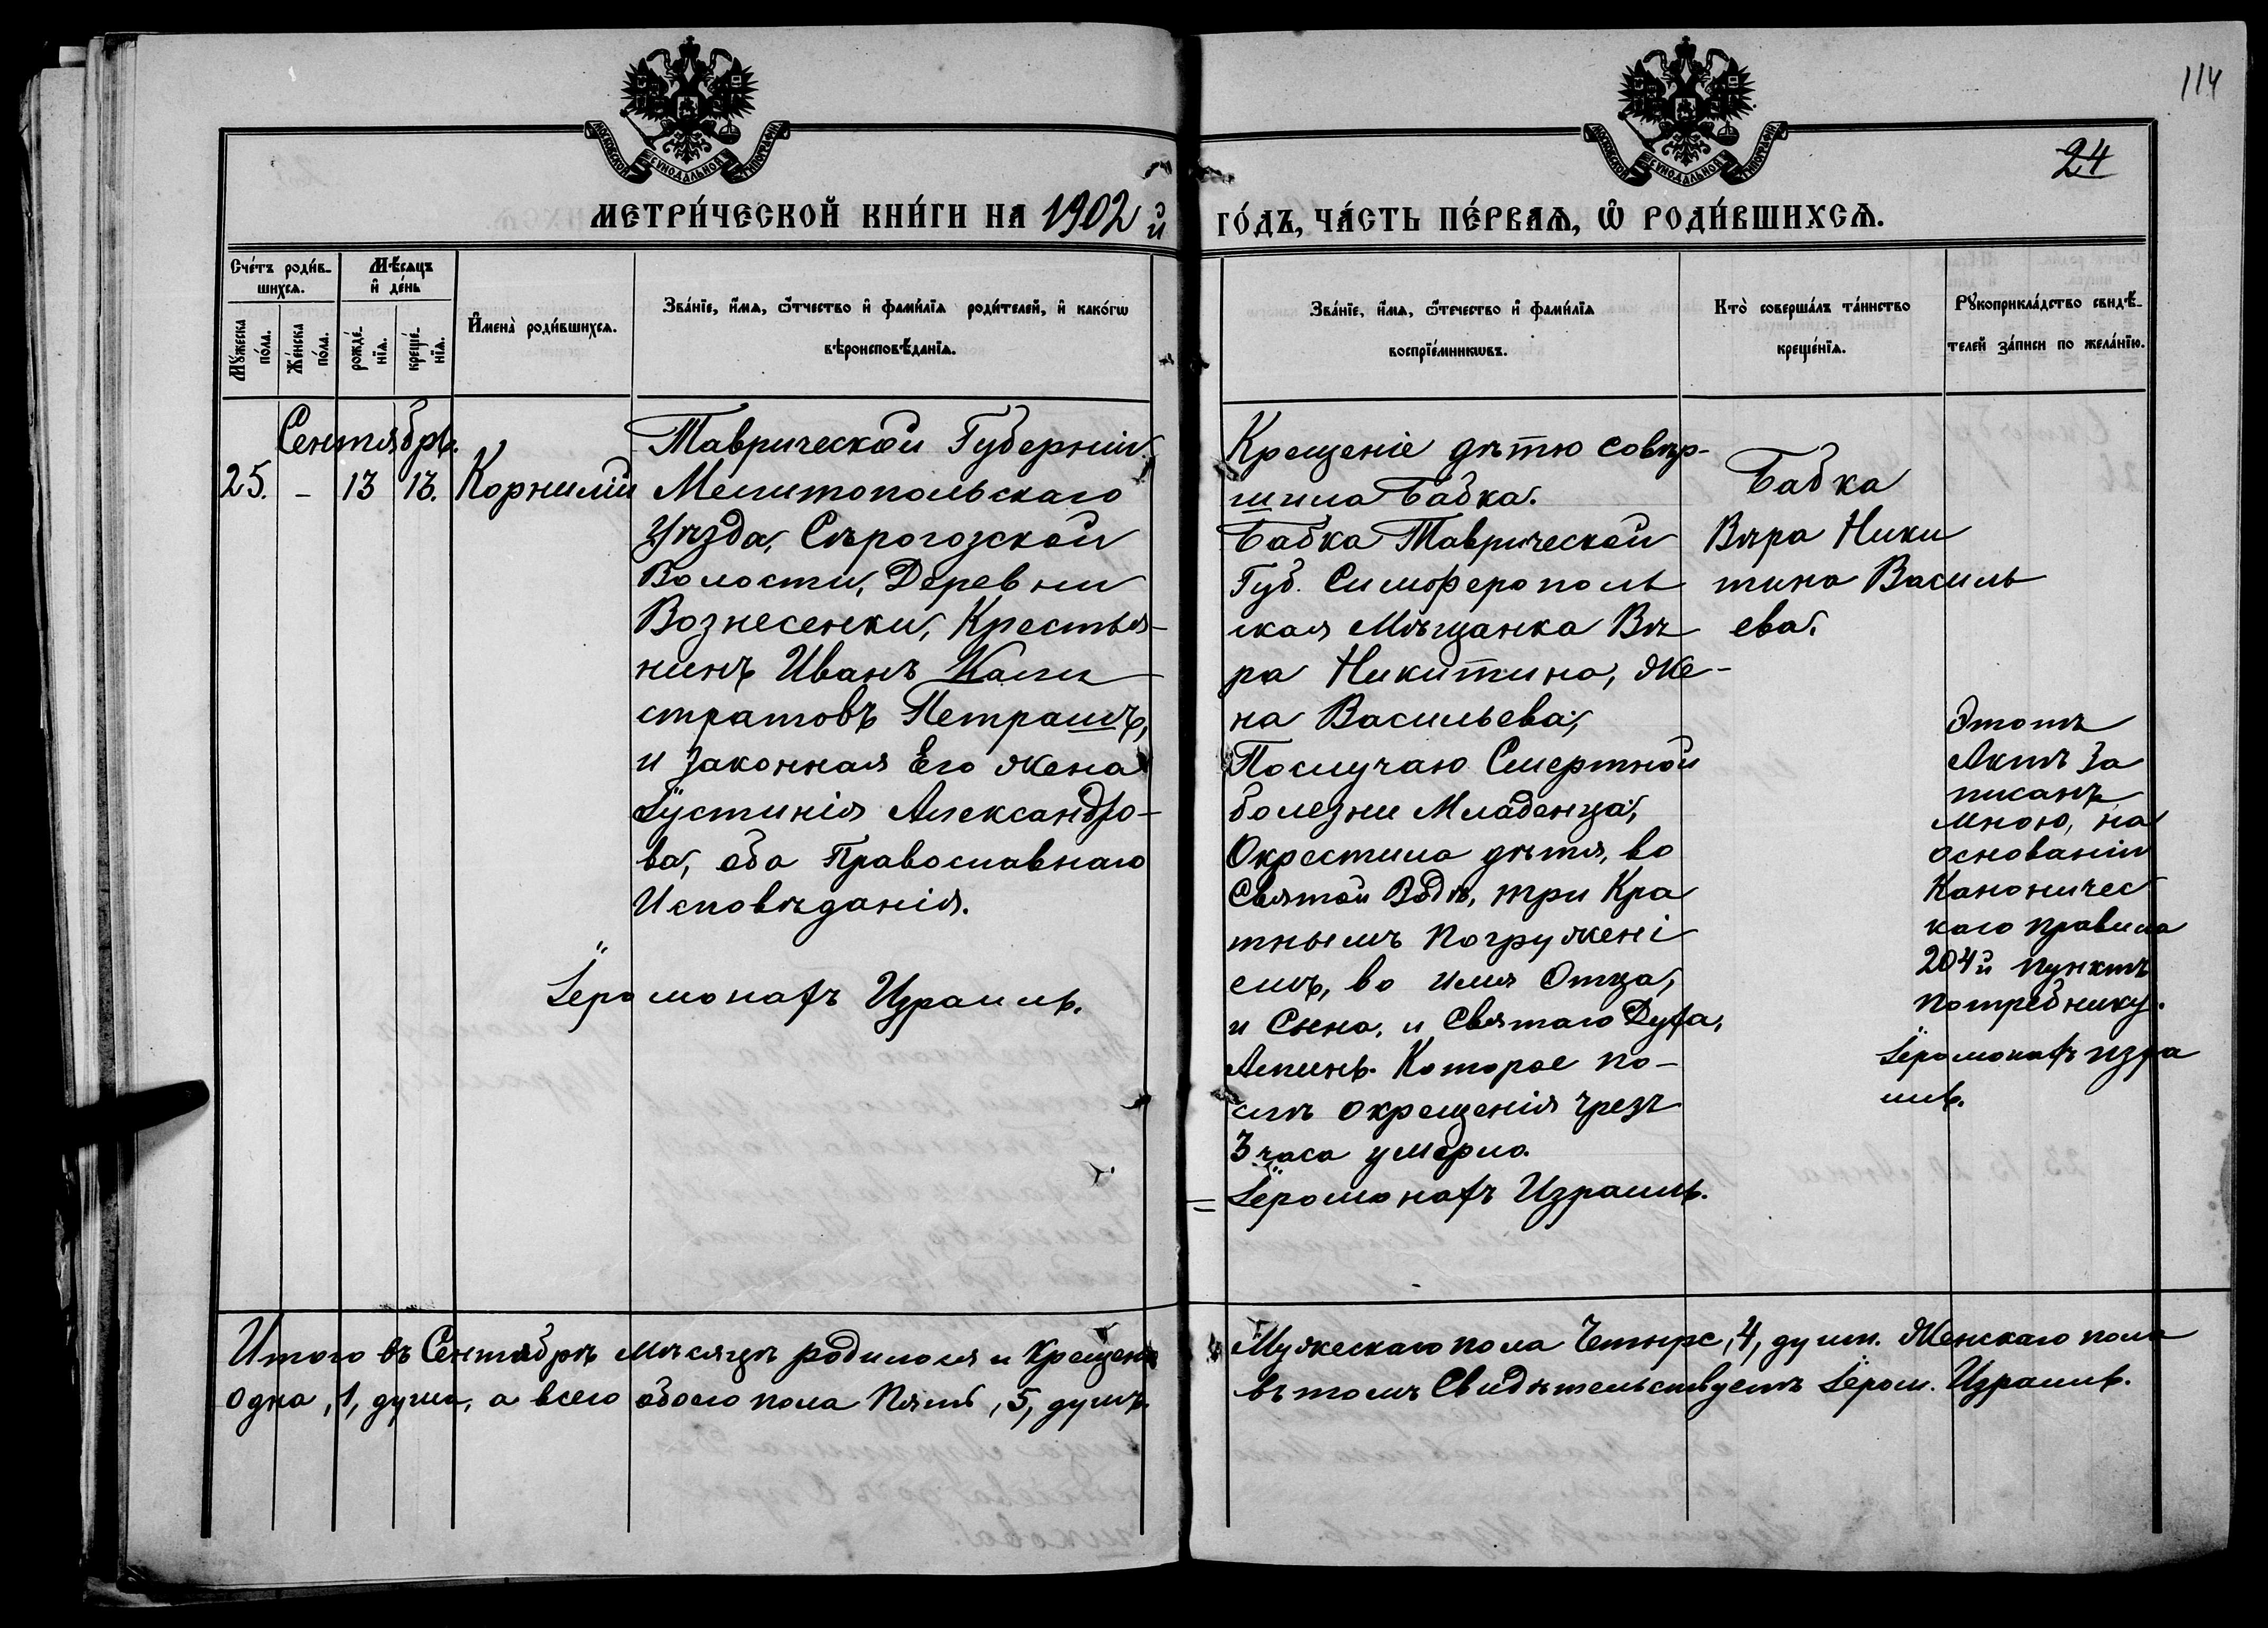 114
24
МОСКОВСКОЙ СѴНОДАЛЬНОЙ ТИПОГРАФІИ
МОСКОВСКОЙ СѴНОДАЛЬНОЙ ТИПОГРАФІИ
МЕТРИ́ЧЕСКОЙ КНИ́ГИ НА 1902 й ГО́ДЪ, ЧА́СТЬ ПЕ́РВАѦ, Ѿ РОДИ́ВШИХСѦ.
Сче́тъ роди́в-
шихсѧ.
Мѣ́сѧцъ
и҆ де́нь
Мꙋ́жеска
по́ла.
Же́нска
по́ла.
рожде́-
нїѧ.
креще́-
нїѧ.
И҆мена̀ роди́вшихсѧ.
Зва́нїе, и҆́мѧ, ѻ҆́тчество и҆ фами́лїѧ роди́телей, и҆ како́гѡ
вѣроисповѣ́данїѧ.
Зва́нїе, и҆́мѧ, ѻ҆́течество и҆ фами́лїѧ
воспрїе́мникѡвъ.
Кто̀ соверша́лъ та́инство
креще́нїѧ.
Рꙋкоприкла́дство свидѣ́-
телей за́писи по жела́нїю.
Сентябрь.
25. – 13 13. Корнилій
Таврической Губерніи
Мелитопольскаго
Уѣзда, Сѣрогозской
Волости, Деревни
Вознесенки, Крестья-
нинъ Иванъ Кали
стратовъ Петрашъ,
и законная Его жена
Іустинія Александро-
ва, оба Православнаго
Исповѣданія.
Іеромонахъ Израиль.
Крещеніе дѣтю совер-
шила Бабка.
Бабка Таврической
Губ. Симферополь
ская Мѣщанка Вѣ
ра Никитина, Же-
на Васильева;
Послучаю Смертной
болезни Младенца;
Окрестила дѣтя, во
Святой Водѣ, три Кра
тнымъ погружені
емъ, во имя Отца,
и Сына, и Святаго Духа,
Аминь. Которое по-
слѣ окрещенія чрезъ
3 часа умерло.
= Іеромонахъ Израиль.
Бабка
Вѣра Ники
тина Василь
ева.
Этотъ
Актъ За
писанъ
мною, на
основаніи
Каноничес
каго правила
204й пунктъ
потребнику.
Іеромонахъ Изра
иль.
Итого въ Сентябрѣ мѣсяцѣ родилося и крещено Мужескаго пола Четыре, 4, душъ. Женскаго пола
Одна, 1, душа, а всего обоего пола Пять, 5, душъ. въ томъ Свидѣтельствуетъ Іером. Израиль.